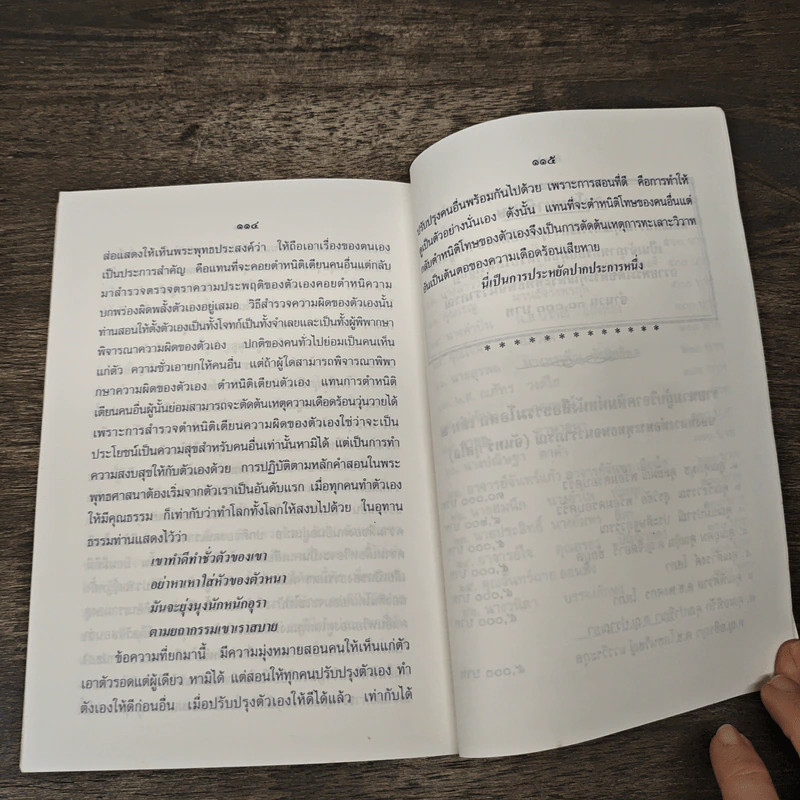 ๑๑๔
ส่อแสดงให้เห็นพระพุทธประสงค์ว่า ให้ถือเอาเรื่องของตนเอง
เป็นประการสำคัญ คือแทนที่จะคอยตำหนิติเตียนคนอื่นแต่กลับ
มาสำรวจตรวจตราความประพฤติของตัวเองคอยตำหนิความ
บกพร่องผิดพลั้งตัวเองอยู่เสมอ วิธีสำรวจความผิดของตัวเองนั้น
ท่านสอนให้ตั้งตัวเองเป็นทั้งโจทก์เป็นทั้งจำเลยและเป็นทั้งผู้พิพากษา
พิจารณาความผิดของตัวเอง ปกติของคนทั่วไปย่อมเป็นคนเห็น
แก่ตัว ความชั่วเอายกให้คนอื่น แต่ถ้าผู้ใดสามารถพิจารณาพิพา
กษาความผิดของตัวเอง ตำหนิติเตียนตัวเอง แทนการตำหนิติ
เตียนคนอื่นผู้นั้นย่อมสามารถจะตัดต้นเหตุความเดือดร้อนวุ่นวายได้
เพราะการสำรวจตำหนิติเตียนความผิดของตัวเองใช่ว่าจะเป็น
ประโยชน์เป็นความสุขสำหรับคนอื่นเท่านั้นหามิได้ แต่เป็นการทำ
ความสงบสุขให้กับตัวเองด้วย การปฏิบัติตามหลักคำสอนในพระ
พุทธศาสนาต้องเริ่มจากตัวเราเป็นอันดับแรก เมื่อทุกคนทำตัวเอง
ให้มีคุณธรรม ก็เท่ากับว่าทำโลกทั้งโลกให้สงบไปด้วย ในอุทาน
ธรรมท่านแสดงไว้ว่า
เขาทำดีทำชั่วตัวของเขา
อย่าหาเหาใส่หัวของตัวหนา
มันจะยุ่งนุงนักหนักอุรา
ตามยถากรรมเขาเราสบาย
ข้อความที่ยกมานี้ มีความมุ่งหมายสอนคนให้เห็นแก่ตัว
เอาตัวรอดแต่ผู้เดียว หามิได้ แต่สอนให้ทุกคนปรับปรุงตัวเอง ทำ
ตังเองให้ดีก่อนอื่น เมื่อปรับปรุงตัวเองให้ดีได้แล้ว เท่ากับได้
๑๑๕
ปรับปรุงคนอื่นพร้อมกันไปด้วย เพราะการสอนที่ดี คือการทำให้
ดูเป็นตัวอย่างนั่นเอง ดังนั้น แทนที่จะตำหนิติโทษของคนอื่นแต่
กลับตำหนิติโทษของตัวเองจึงเป็นการตัดต้นเหตุการทะเลาะวิวาท
อันเป็นต้นตอของความเดือดร้อนเสียหาย
นี่เป็นการประหยัดปากประการหนึ่ง
* * * * * * * * * * * * *